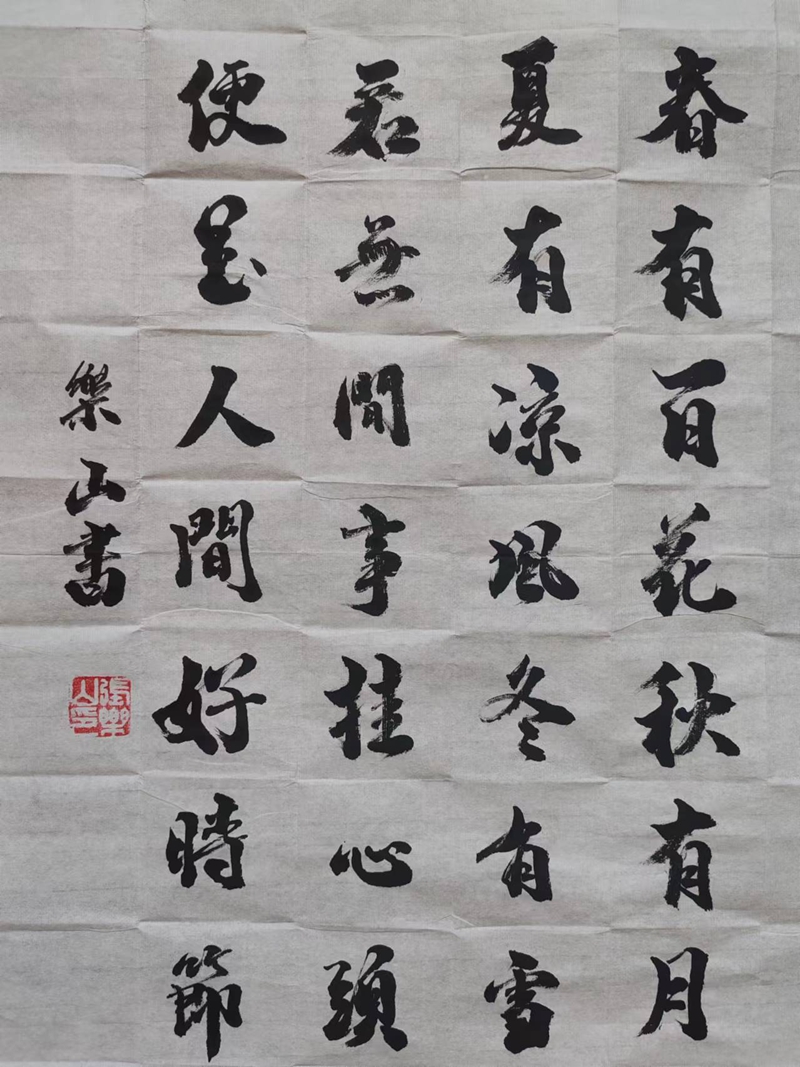 春有百花秋有月
夏有凉风冬有雪
若無閒事挂心頭
便是人間好時節
樂山書
張樂山印